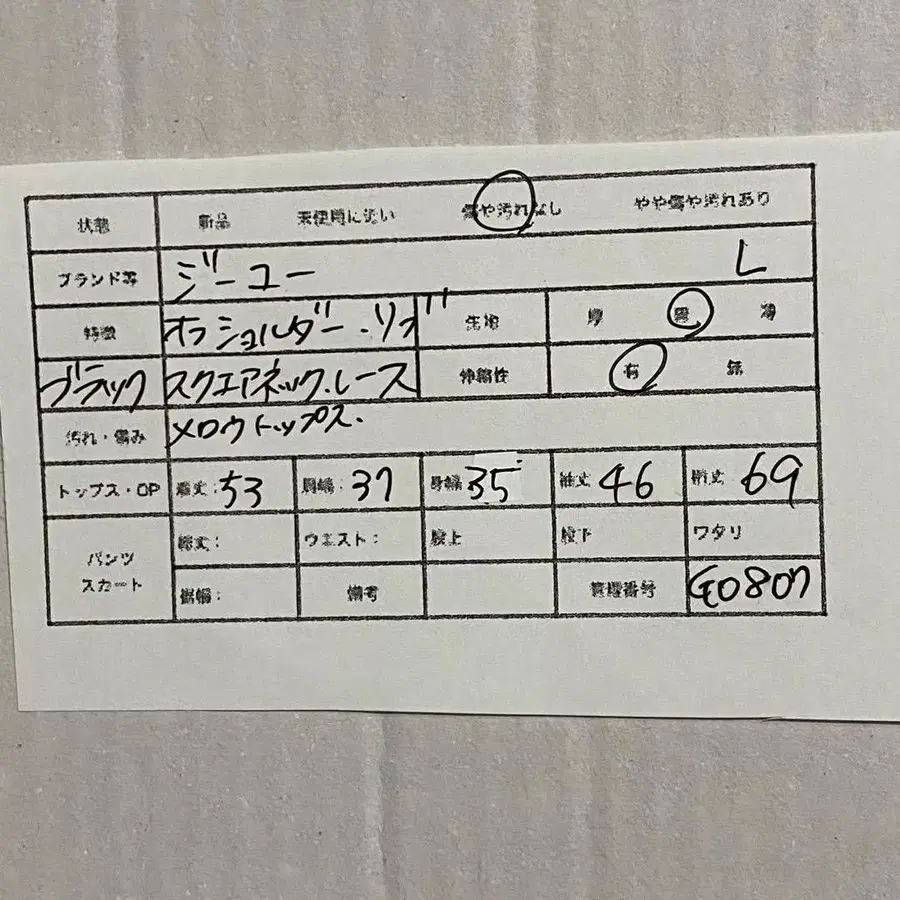 状態 新品 未使用に近い 傷や汚れなし やや傷や汚れあり
ブランド等 ジーユー L
特徴 オフショルダー・リブ 生地 厚 普 薄
ブラック スクエアネック・レース 伸縮性 有 無
汚れ・傷み メロウトップス.
トップス・OP 着丈: 53 肩幅: 37 身幅 35 袖丈 46 裄丈 69
パンツ スカート 総丈: ウエスト: 股上 股下 ワタリ
裾幅: 備考 管理番号 G0807